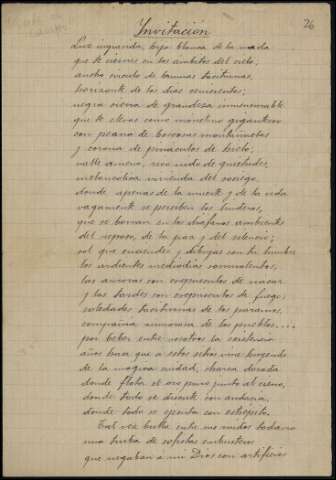 26
Invitación
Luz impasible, hija blanca de la nada
que te ciernes en los ámbitos del cielo,
ancho mundo de taciturnas,
horizonte de los días cenicientos;
negra sierra de grandeza inmensurable
que te elevas como monstruo gigantesco
con peana de montículos
y corona de pináculos de hielo;
valle ameno, nido de quietudes,
melancólica vivienda del sosiego,
donde apenas de la muerte y de la vida
vagamente se perciben los linderos,
que se borran en los diáfanos ambientes
del reposo, de la paz y del silencio;
sol que enciendes y dibujas con tu lumbre
los ardientes mediodías somnolientos,
las auroras con crepúsculos de nacar
y las tardes con crepúsculos de fuego;
soledades taciturnas de los páramos,
compañía rumorosa de los pueblos...
por beber entre vosotros la existencia
años hace que a estos sitios vine huyendo
de la mágica ciudad, charca dorada
donde flota el oro puro junto al cieno,
donde todo se discute con audacia,
donde todo se ejecuta con estrépito.
Tal vez bulle entre mis ruidos todavía
una turba de sofistas embusteros
que negaban a mi Dios con artificios